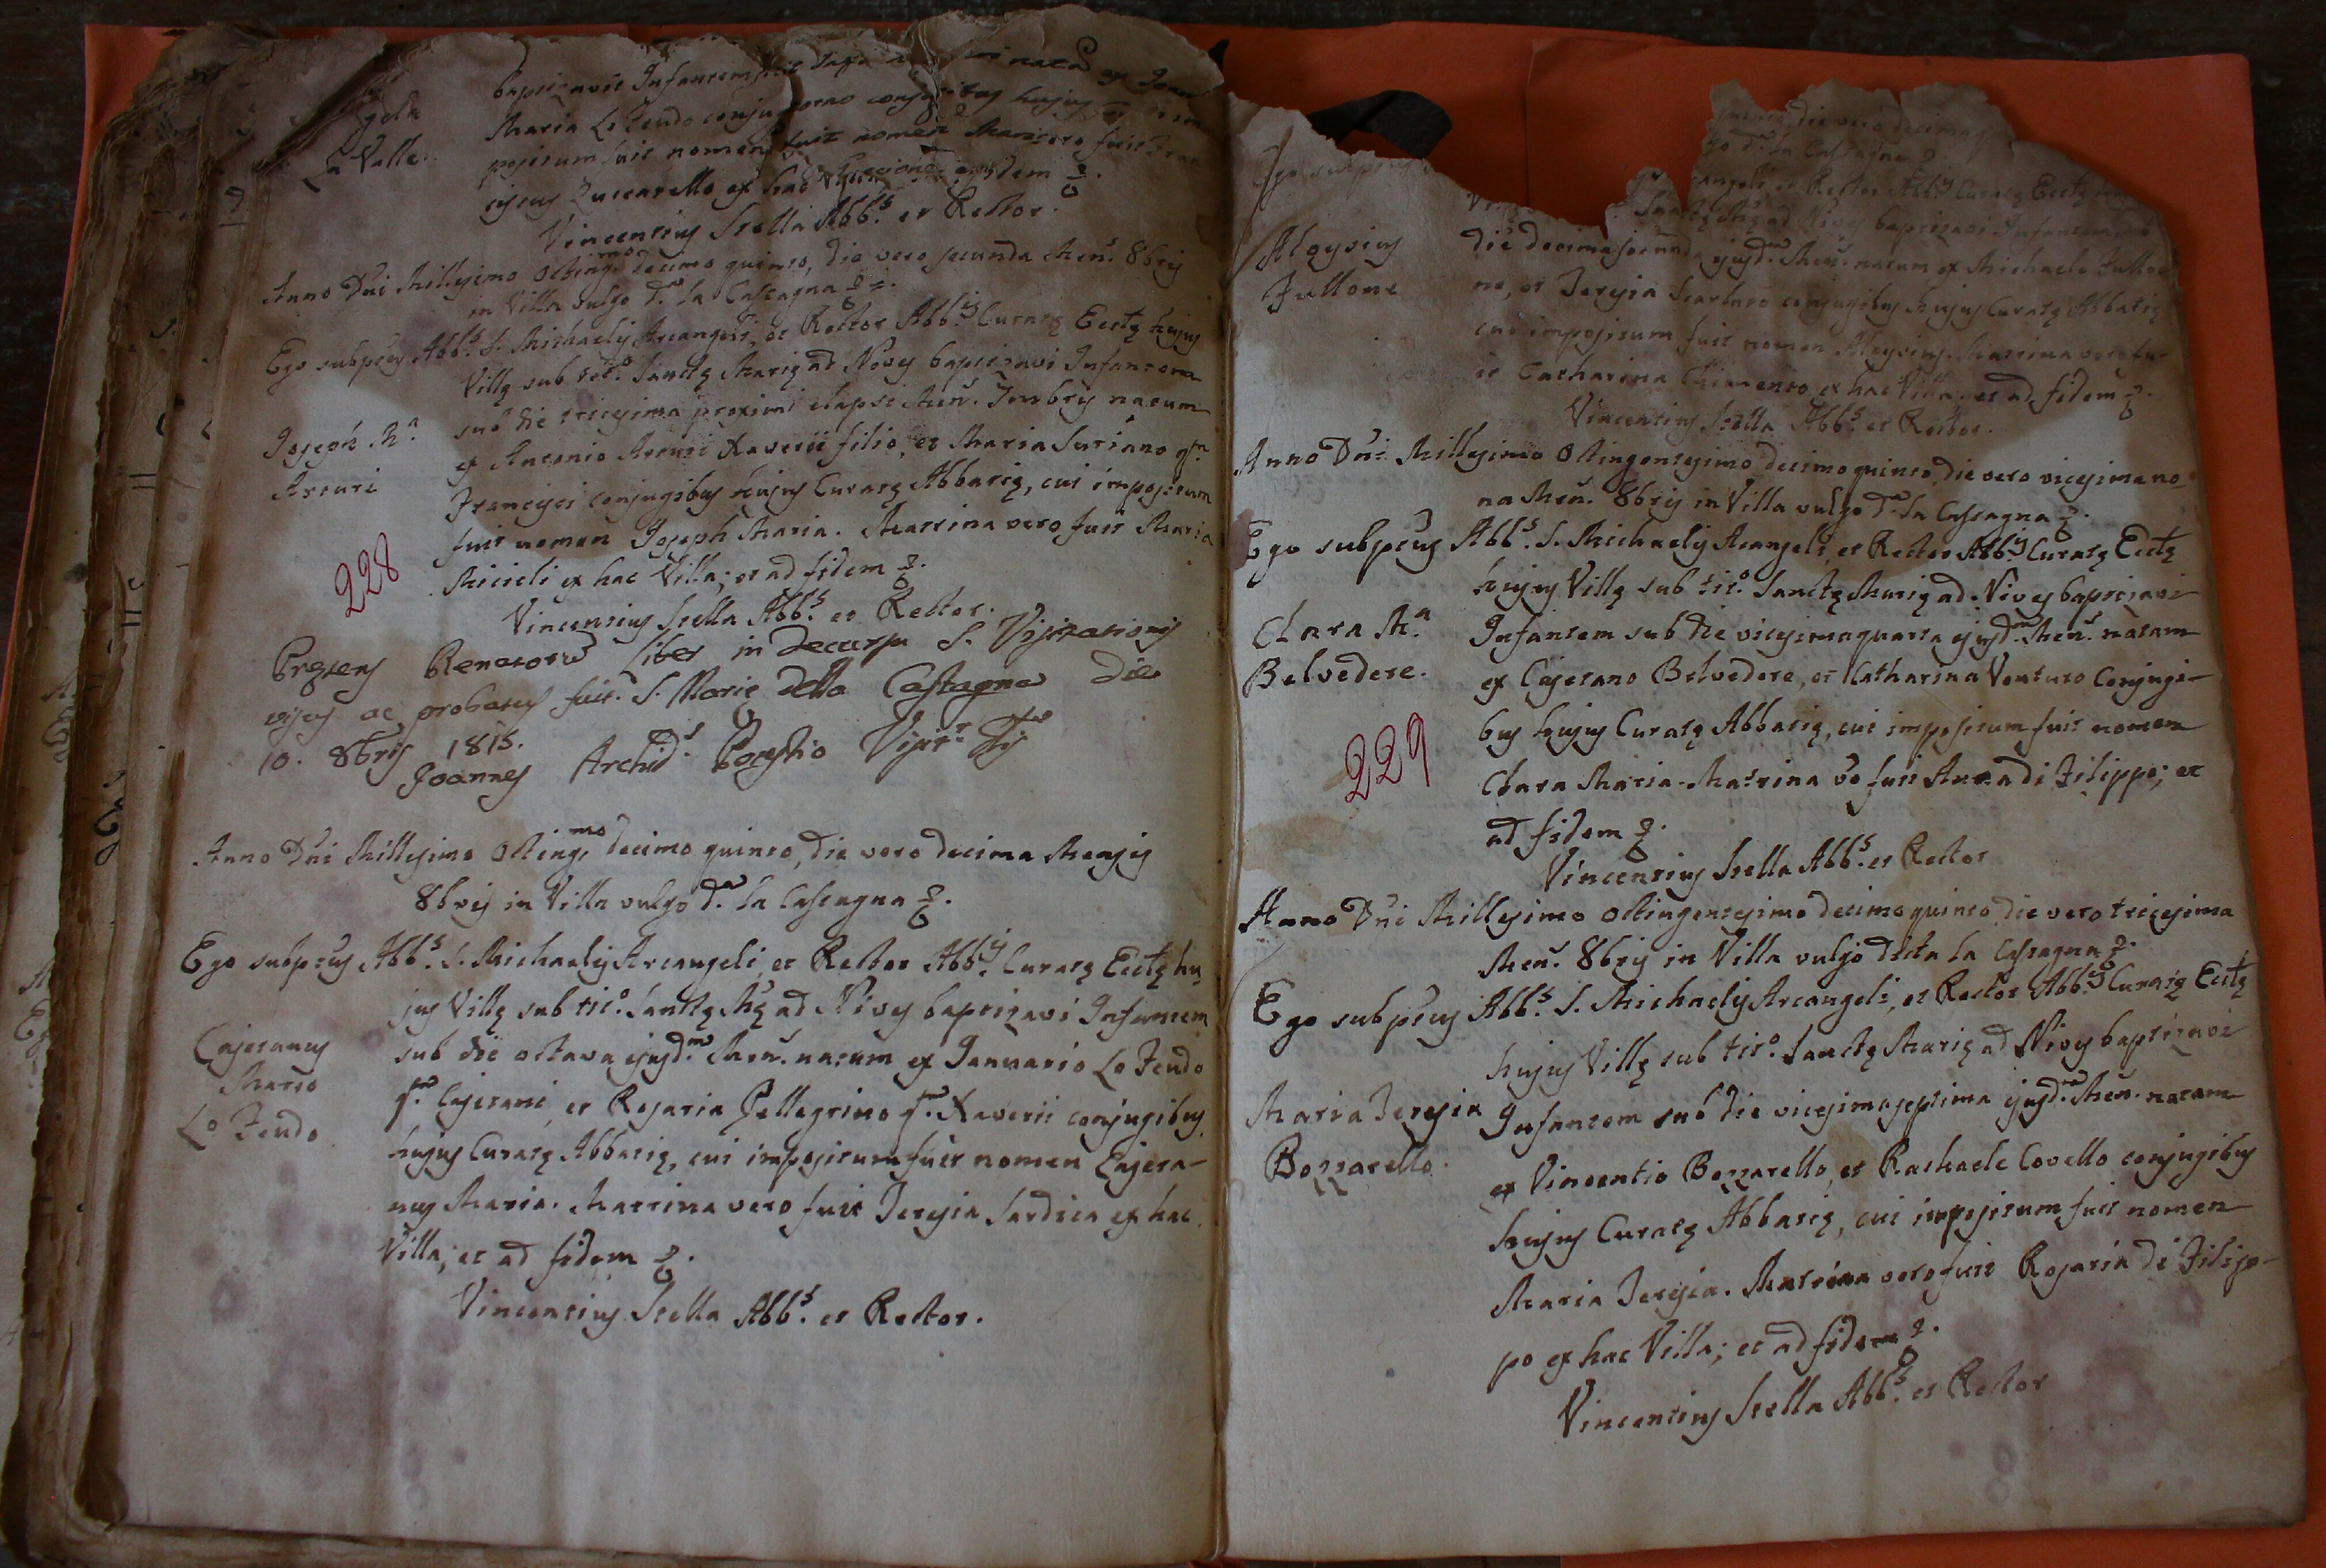 baptizavit Infantem
Maria Lo Feudo
positum fuit nomen
Zuccarello ex hac
Vincentius Stella Abb.s et Rector.
La Valle.
Anno Dñi Millesimo Octing.mo decimo quinto, die vero secunda Men.s 8bris
in Villa vulgo d.a La Castagna
Ego subptus Abb.s S. Michaelis Arcangeli, et Rector Abb.is Curatę Ecctę hujus
Villę sub tit.o Sanctę Marię ad Nives baptizavi Infantem
sub die tricesima proximi elapsi Men.s 7mbris natum
ex Antonio Arturi Xaverii filio, et Maria Suriano q.m
Francisci conjugibus hujus Curatę Abbatię, cui impositum
fuit nomen Joseph Maria. Matrina vero fuit Maria
Micieli ex hac Villa; et ad fidem
Vincentius Stella Abb.s et Rector.
Joseph M.a
Arturi
228
Pręsens Renatorū Liber in decursu S. Visitationis
visus ac probatus fuit. S. Marię della Castagna Die
10. 8bris 1815.
Joannes Archid.s
Anno Dñi Millesimo Octing.mo decimo quinto, die vero decima Mensis
8bris in Villa vulgo d.a La Castagna
Ego subptus Abb.s S. Michaelis Arcangeli, et Rector Abb.is Curatę Ecctę hu
jus Villę sub tit.o Sanctę Mę ad Nives baptizavi Infantem
sub die octava ejusd.m Men.s natum ex Januario Lo Feudo
q.m Cajetani, et Rosaria Pellegrino q.m Xaverii conjugibus
hujus Curatę Abbatię, cui impositum fuit nomen Cajeta-
nus Maria. Matrina vero fuit Teresia Sardica ex hac
Villa; et ad fidem
Vincentius Stella Abb.s et Rector.
Cajetanus
Maria
Lo Feudo
die vero decima
La Castagna
Rector Abb.is Curatę Ecctę
Sanctę Mę ad Nives baptizavi Infantem
die decimasecunda ejusd.m Men.s natum ex Michaele Fullo
ne, et Teresia Scarlato conjugibus hujus Curatę Abbatię
cui impositum fuit nomen Aloysius. Matrina vero fu-
it Catharina Chimento ex hac Villa; et ad fidem
Vincentius Stella Abb.s et Rector.
Aloysius
Fullone
Anno Dñi Millesimo Octingentesimo decimo quinto, die vero vicesima no
na Men.s 8bris in Villa vulgo d.a La Castagna
Ego subptus Abb.s S. Michaelis Arcangeli, et Rector Abb.is Curatę Ecctę
hujus Villę sub tit.o Sanctę Marię ad Nives baptizavi
Infantem sub die vicesimaquarta ejusd.m Men.s natam
ex Cajetano Belvedere, et Catharina Venturo Conjugi-
bus hujus Curatę Abbatię, cui impositum fuit nomen
Clara Maria. Matrina vo fuit Anna di Filippo; et
ad fidem
Vincentius Stella Abb.s et Rector
Clara M.a
Belvedere.
229
Anno Dñi Millesimo Octingentesimo decimo quinto, die vero tricesima
Men.s 8bris in Villa vulgo dicta La Castagna
Ego subptus Abb.s S. Michaelis Arcangeli, et Rector Abb.is Curatę Ecctę
hujus Villę sub tit.o Sanctę Marię ad Nives baptizavi
Infantem sub die vicesimaseptima ejusd.m Men.s natam
ex Vincentio Bozzarello, et Rachaele Covello conjugibus
hujus Curatę Abbatię, cui impositum fuit nomen
Maria Teresia. Matrina vero fuit Rosaria di Filip-
po ex hac Villa; et ad fidem
Vincentius Stella Abb.s et Rector
Maria Teresia
Bozzarello.